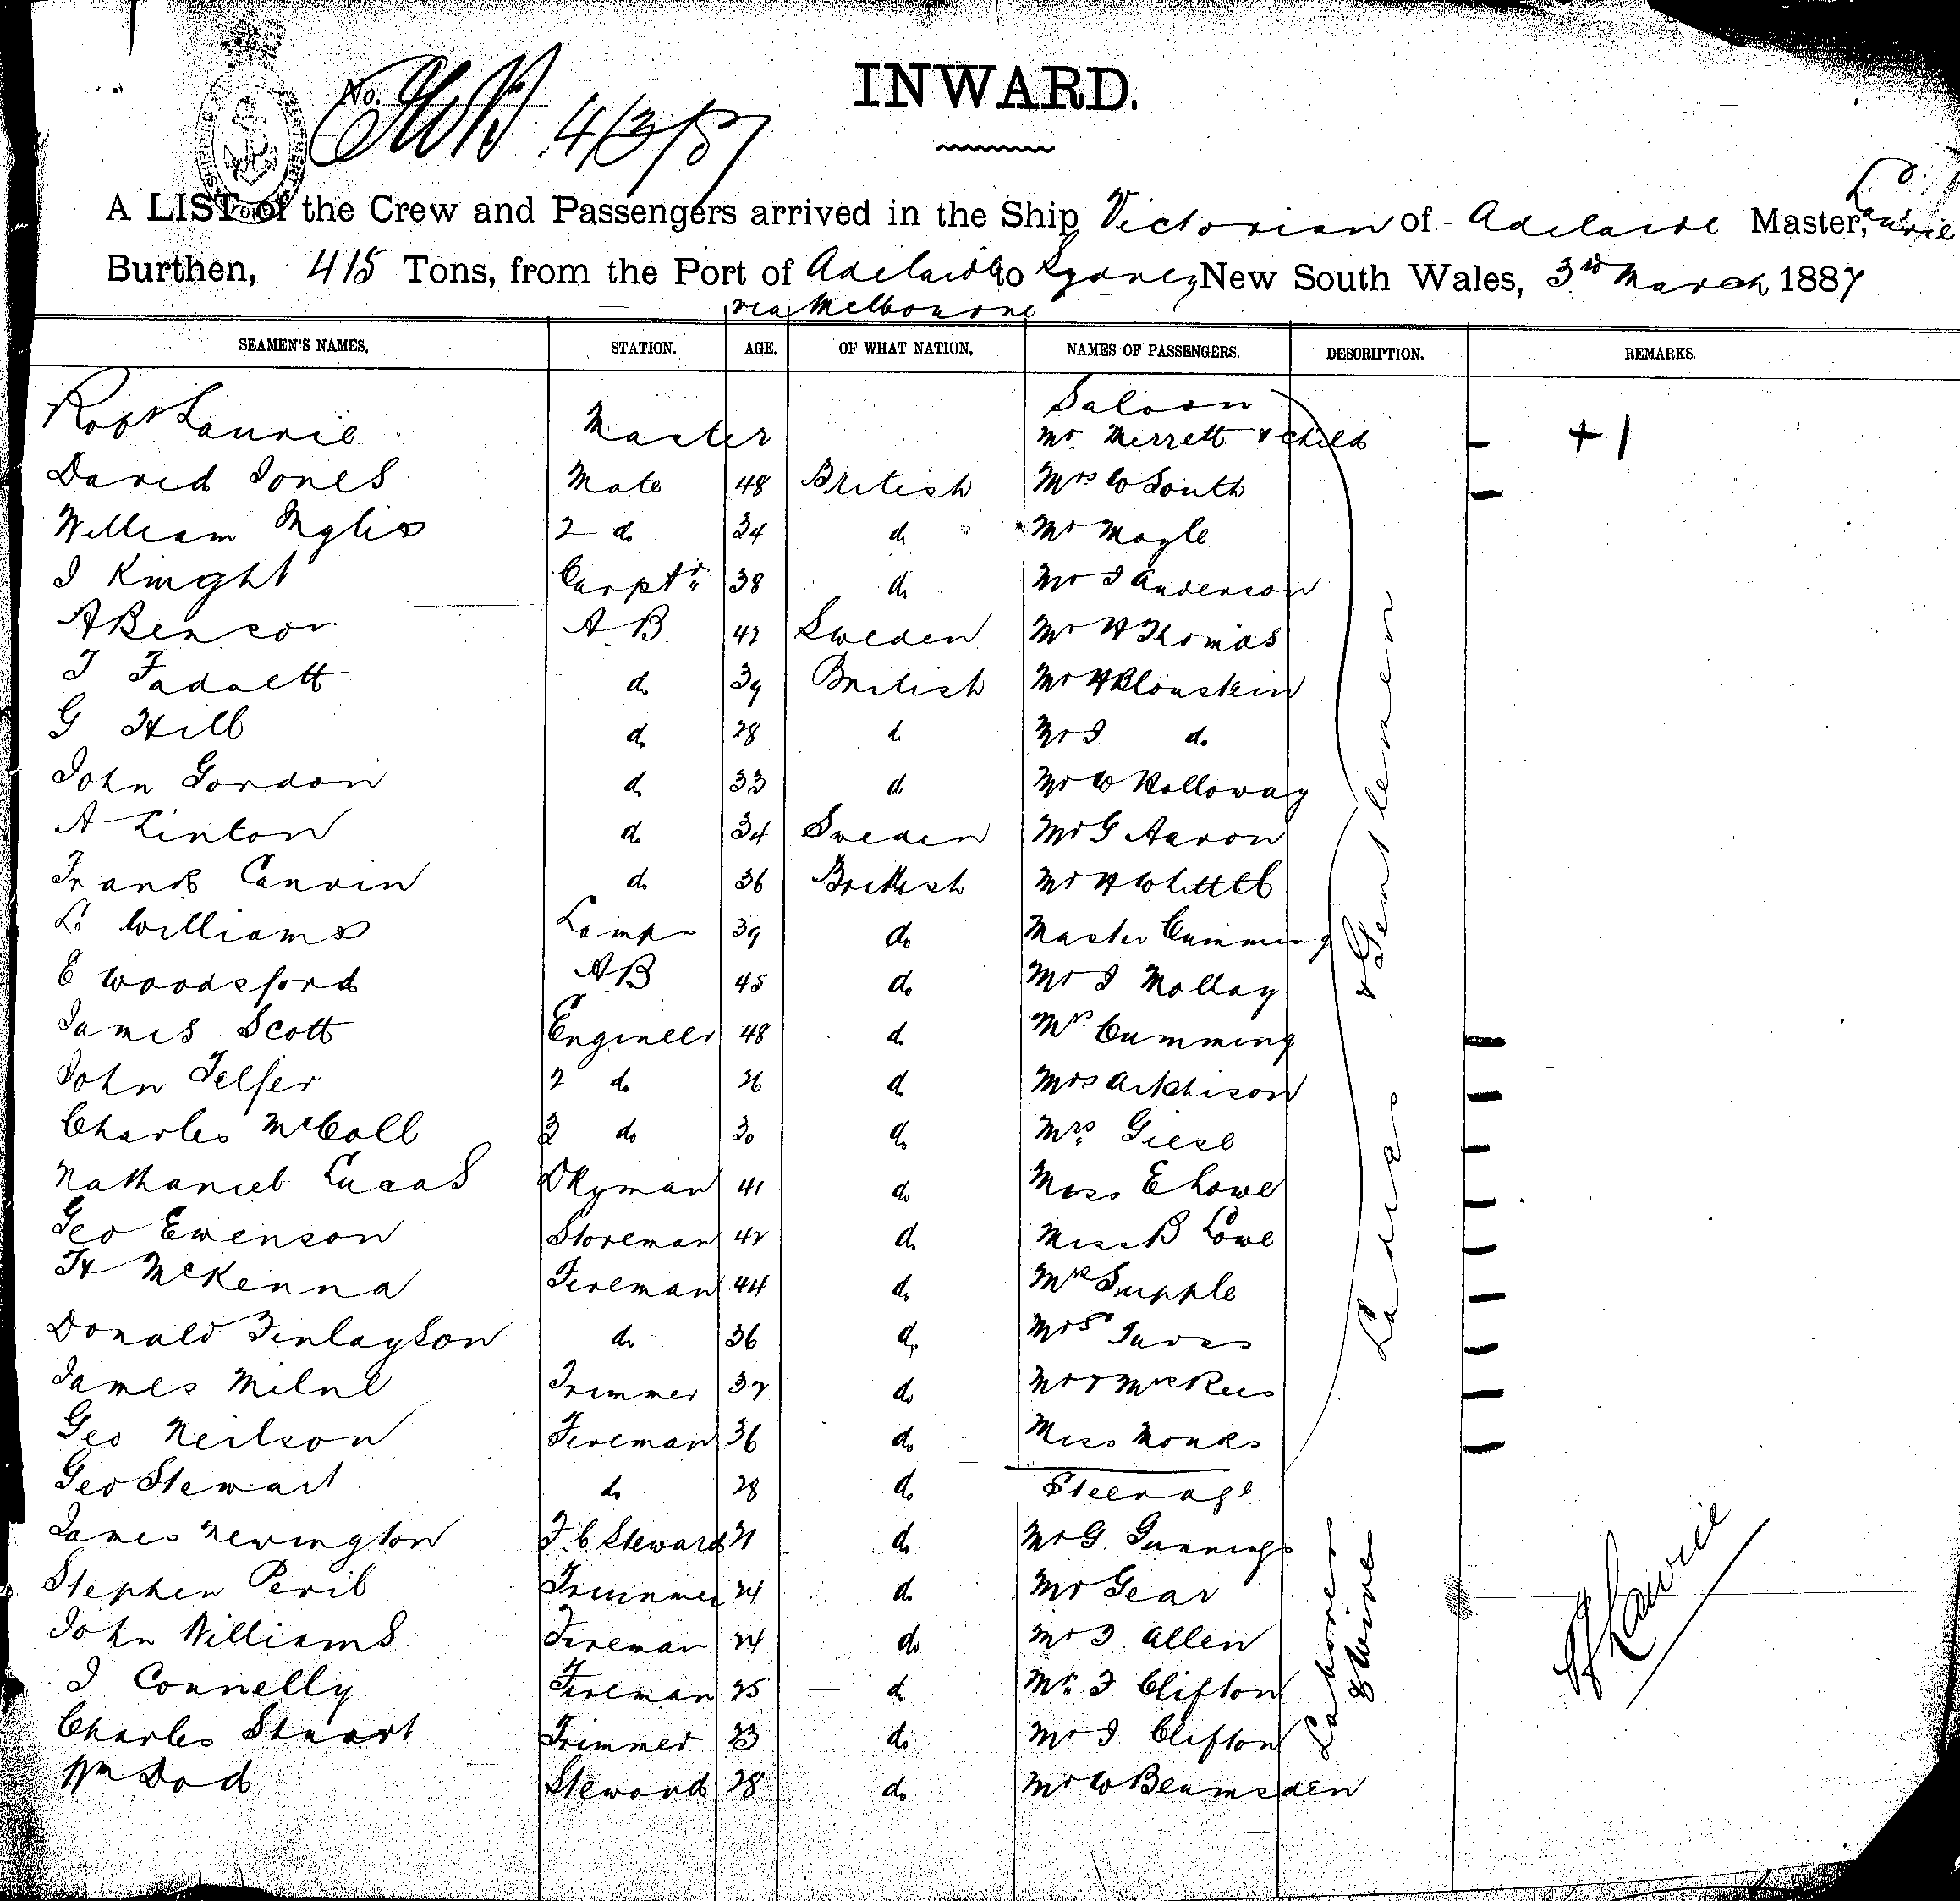 INWARD.
No. 4/3/87
A LIST of the Crew and Passengers arrived in the Ship Victorian of Adelaide Master, Laurie
Burthen, 415 Tons, from the Port of Adelaide to Sydney New South Wales, 3rd March 1887
via Melbourne
SEAMEN'S NAMES. STATION. AGE. OF WHAT NATION. NAMES OF PASSENGERS. DESCRIPTION. REMARKS.
Saloon
Robt Laurie Master Mr Merrett & child +1
David Jones Mate 48 British Mrs W South
William Inglis 2 do 34 do Mr Mogle
J Knight Carptr 38 do Mr J Anderson
A Benson A B 42 Sweden Mr H Thomas
T do 39 British Mr H Blonskin
G Hill do 28 do Mr J do
John Gordon do 33 do Mr W Holloway
A Linton do 34 Sweden Mr G Aaron
Frank Canvin do 36 British Mr H Whittle
L Williams Lamps 39 do Master Cumming
E Woodsford A B 45 do Mr J Molloy
James Scott Engineer 48 do Mrs Cumming
John Telfer 2 do 26 do Mrs Aitchison
Charles McColl 3 do 30 do Mrs Giese
Nathaniel Lucas Dkyman 41 do Miss E Lowe
Geo Evenson Storeman 42 do Miss B Lowe
H McKenna Fireman 44 do Mrs Supple
Donald Finlayson do 36 do Mrs
James Milne Trimmer 32 do
Geo Neilson Fireman 36 do Miss Monks
Geo Stewart do 28 do Steerage
James Newington F. C Steward 21 do Mr G Gunnings
Stephen Peril Trimmer 24 do Mr Gear
John Williams Fireman 24 do Mr J. Allen
J Connelly Fireman 25 do Mr F Clifton
Charles Stuart Trimmer 23 do Mr J Clifton
Wm Dod Steward 28 do Mr W Beamsden
Ladies & Gentlemen
Labourers
R Laurie